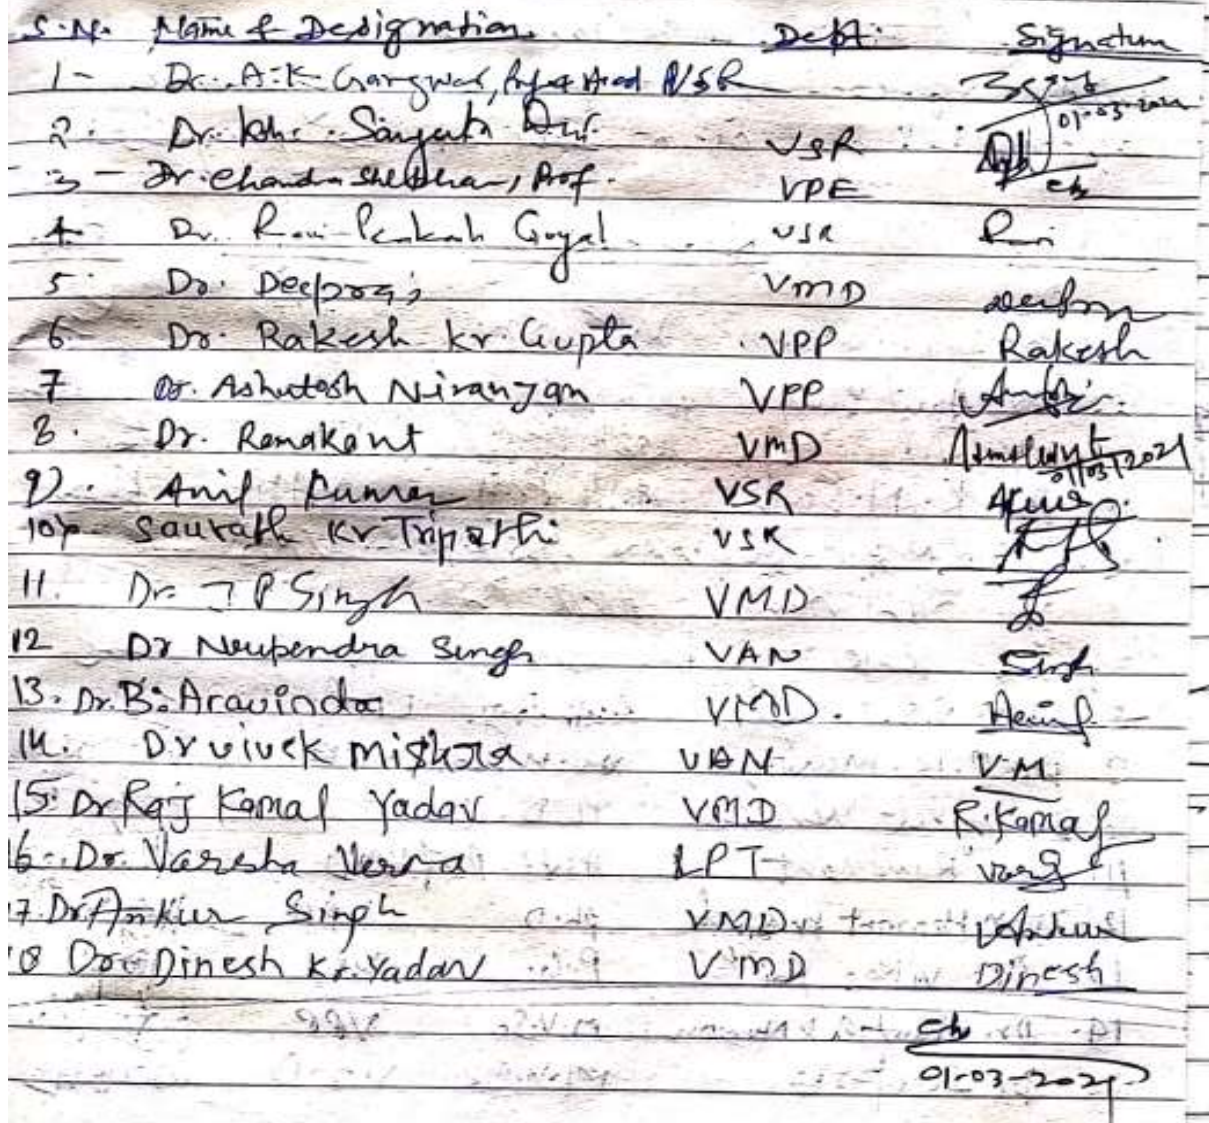 S.N. Name & Designation Dept. Signature
1- Dr. A.K. Gangwar, Prof & Head VSR
01-03-2021
2. Dr. Kh. Sangeeta Devi VSR
3- Dr. Chandra Shekhar, Prof. VPE Ch
4 Dr. Ravi Prakash Goyal VSR Ravi
5. Dr. Deepraj VMD
6. Dr. Rakesh Kr. Gupta VPP Rakesh
7 Dr. Ashutosh Niranjan VPP
8. Dr. Ramakant VMD Ramakant
01/03/2021
9). Anil Kumar VSR
10) Saurabh Kr Tripathi VSR
11. Dr. J P Singh VMD
12 Dr Neupendra Singh VAN Singh
13. Dr. B. Aravinda VMD.
14. Dr Vivek Mishra VAN VM
15. Dr Raj Kamal Yadav VMD R.Kamal
16. Dr. Varsha Verma LPT
17. Dr Ankur Singh VMD Ankur
18 Dr. Dinesh Kr. Yadav VMD Dinesh
Ch
01-03-2021